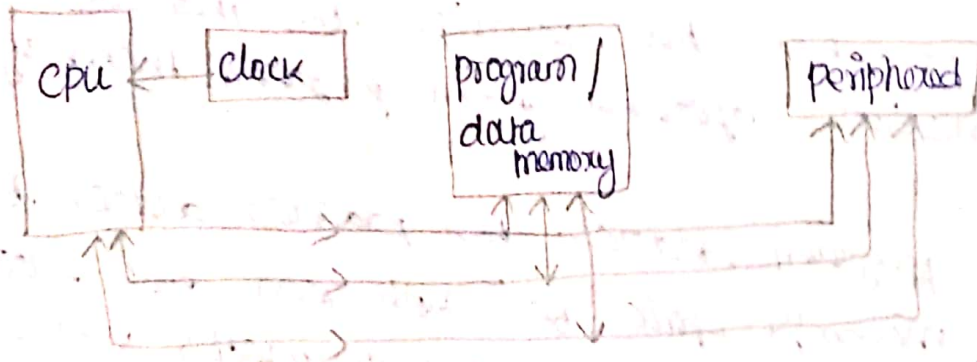 cpu
clock
program /
data
memory
peripheral